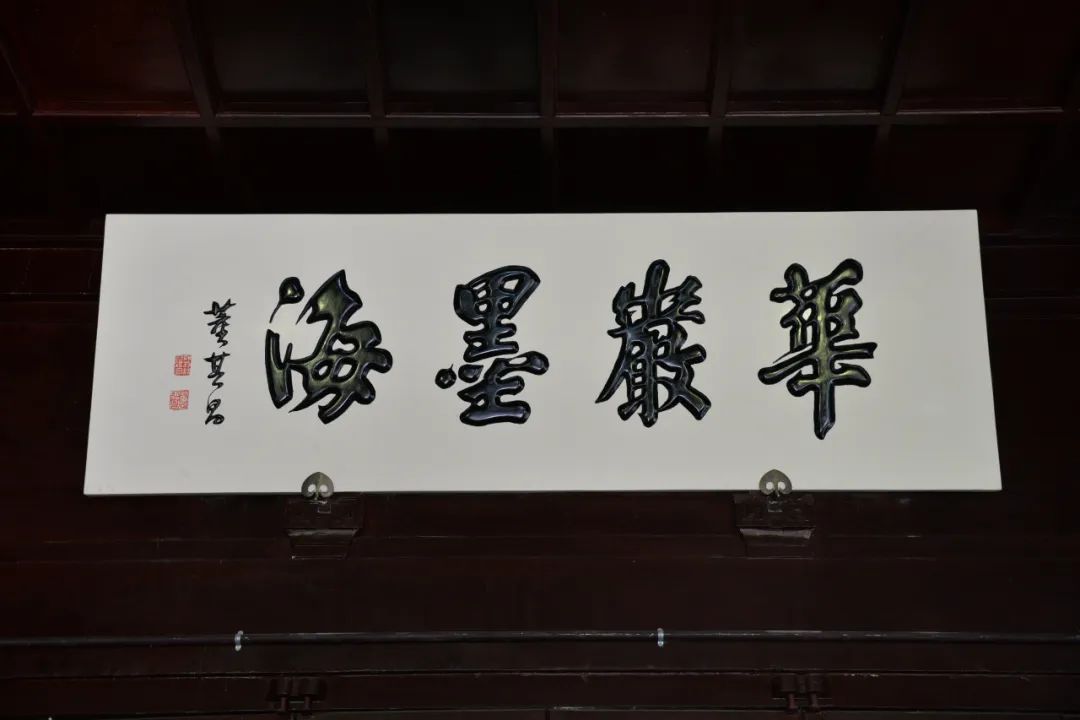 華嚴墨海
董其昌